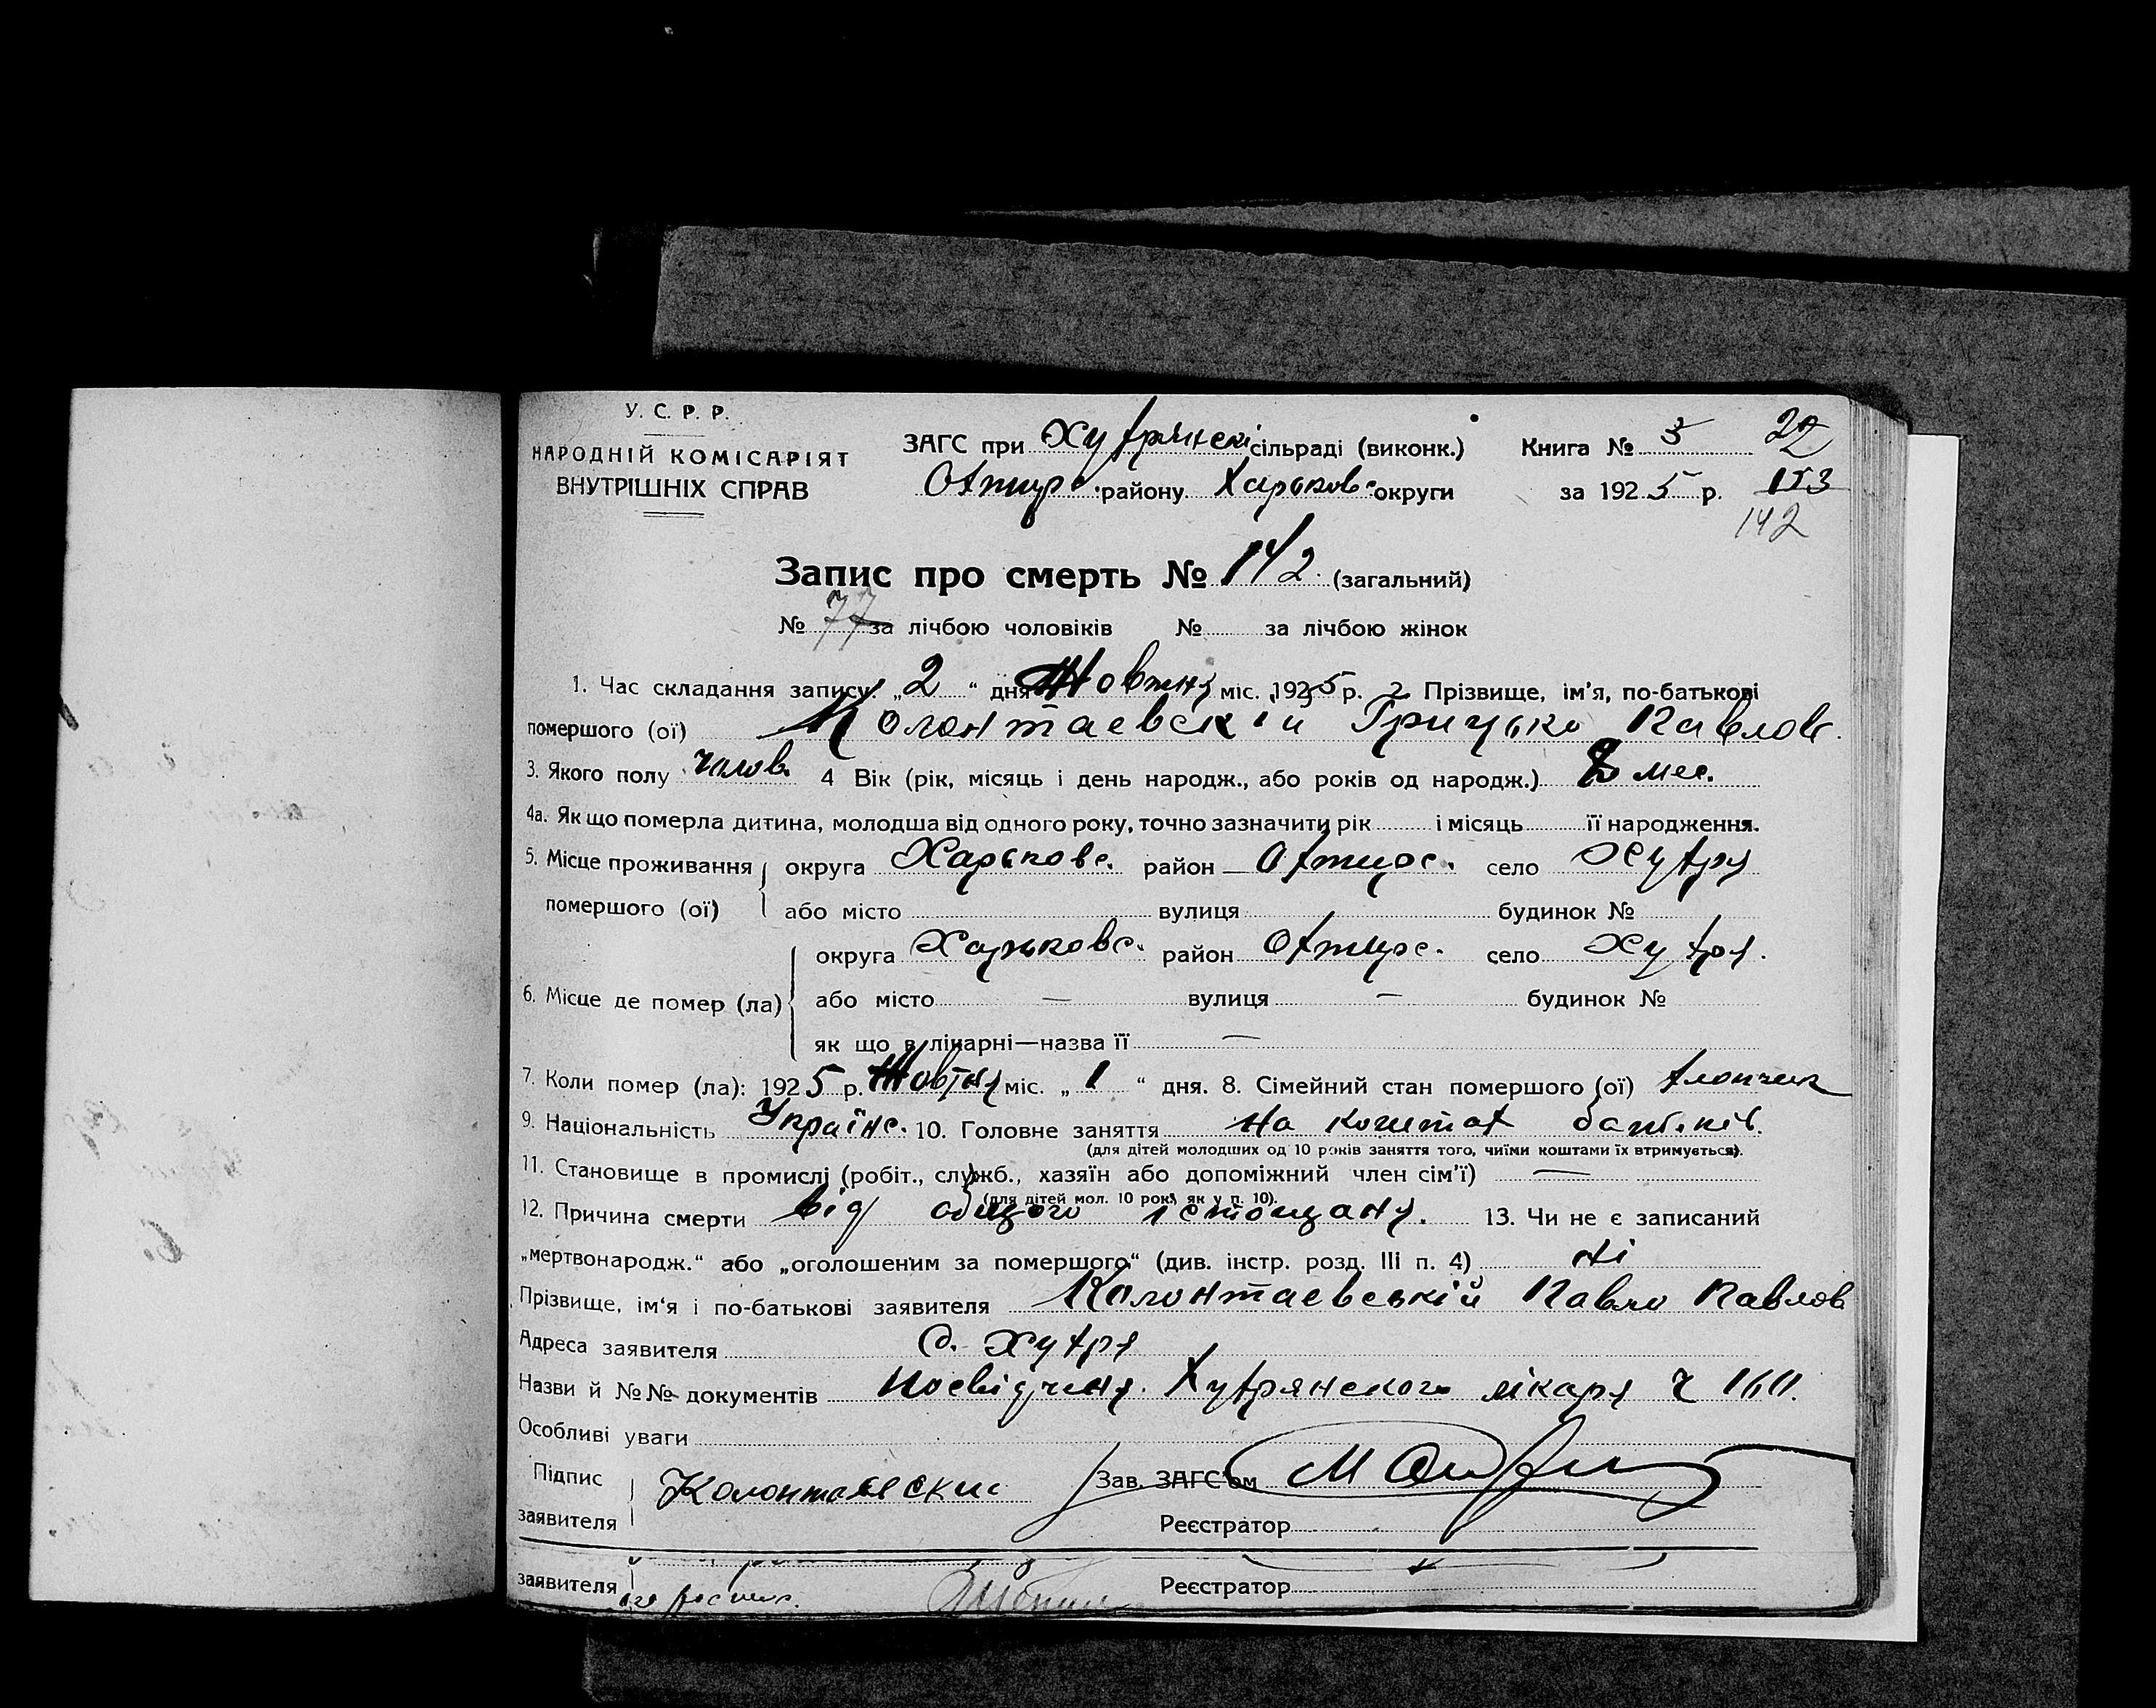 У. С. Р. Р.
НАРОДНІЙ КОМІСАРІЯТ
ВНУТРІШНІХ СПРАВ
ЗАГС при Хухрянскі сільраді (виконк.) Книга № 3 22
Охтир. району Харьков. округи за 1925 р. 153
142
Запис про смерть № 142 (загальний)
№ 77 за лічбою чоловіків № за лічбою жінок
1. Час складання запису: „2“ дня Жовтня міс. 1925 р. 2. Прізвище, ім'я, по-батькові
помершого (ої) Колонтаевскій Грицько Павлов.
3. Якого полу Чолов. 4 Вік (рік, місяць і день народж., або років од народж.) мес.
4а. Як що померла дитина, молодша від одного року, точно зазначити рік і місяць її народження.
5. Місце проживання округа Харьковс. район Охтирс. село Хухря
помершого (ої) або місто вулиця будинок №
округа Харьковс. район Охтирс. село Хухря.
6. Місце де помер (ла) або місто — вулиця — будинок №
як що в лікарні—назва її —
7. Коли помер (ла): 1925 р. Жовтня міс. „1“ дня. 8. Сімейний стан помершого (ої) хлопчик
9. Національність Українс. 10. Головне заняття на коштах батьків.
(для дітей молодших од 10 років заняття того, чиїми коштами їх втримується).
11. Становище в промислі (робіт., служб., хазяїн або допоміжний член сім'ї) —
(для дітей мол. 10 рокі, як у п. 10).
12. Причина смерти від общого істощаня. 13. Чи не є записаний
„мертвонародж.“ або „оголошеним за помершого“ (див. інстр. розд. III п. 4) ні
Прізвище, ім'я і по-батькові заявителя Колонтаевській Павло Павлов
Адреса заявителя С. Хухря
Назви й №№ документів Посвідченя. Хухрянского лікаря Ч 1611.
Особливі уваги
Підпис
заявителя Колонтаевскис Зав. ЗАГС'ом
Реєстратор
заявителя Реєстратор